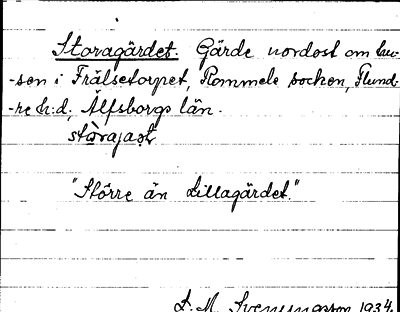 Storagärdet. Gärde nordost om hu-
-sen i Frälsetorpet, Rommele socken, Flund-
-re h:d, Älfsborgs län.
stòrajaṣt
"Större än Lillagärdet."
L. M. Svenungsson 1934.